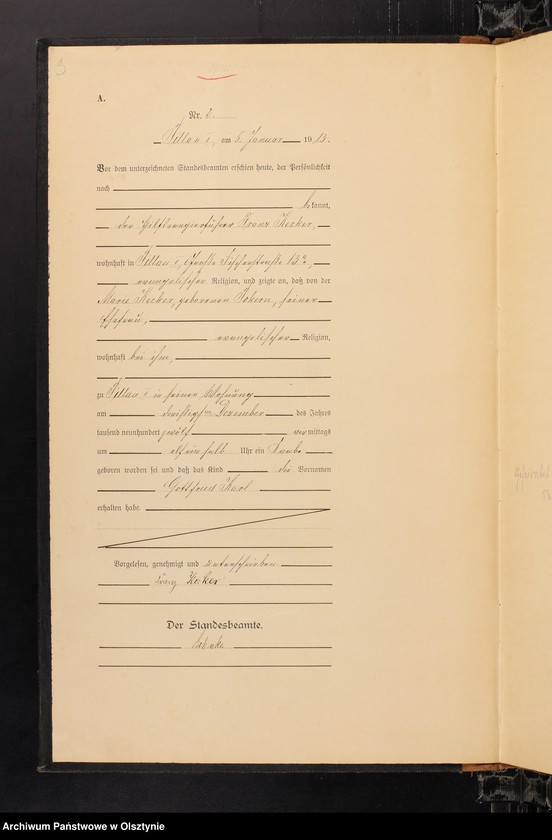 3
A.
Nr. 2.
Pillau I, am 3. Januar 1913.
Vor dem unterzeichneten Standesbeamten erschien heute, der Persönlichkeit
nach
bekannt,
der Hilfsrangierführer Franz Kecker,
wohnhaft in Pillau I, Große Fischerstraße 13a,
evangelischer Religion, und zeigte an, daß von der
Marie Kecker, geborenen Tokern, seiner
Ehefrau,
evangelischer Religion,
wohnhaft bei ihm,
zu Pillau I in seiner Wohnung
am dreißigsten Dezember des Jahres
tausend neunhundert zwölf vormittags
um elfeinhalb Uhr ein Knabe
geboren worden sei und daß das Kind die Vornamen
Gottfried Karl
erhalten habe.
Vorgelesen, genehmigt und unterschrieben
Franz Kecker
Der Standesbeamte.
Archiwum Państwowe w Olsztynie